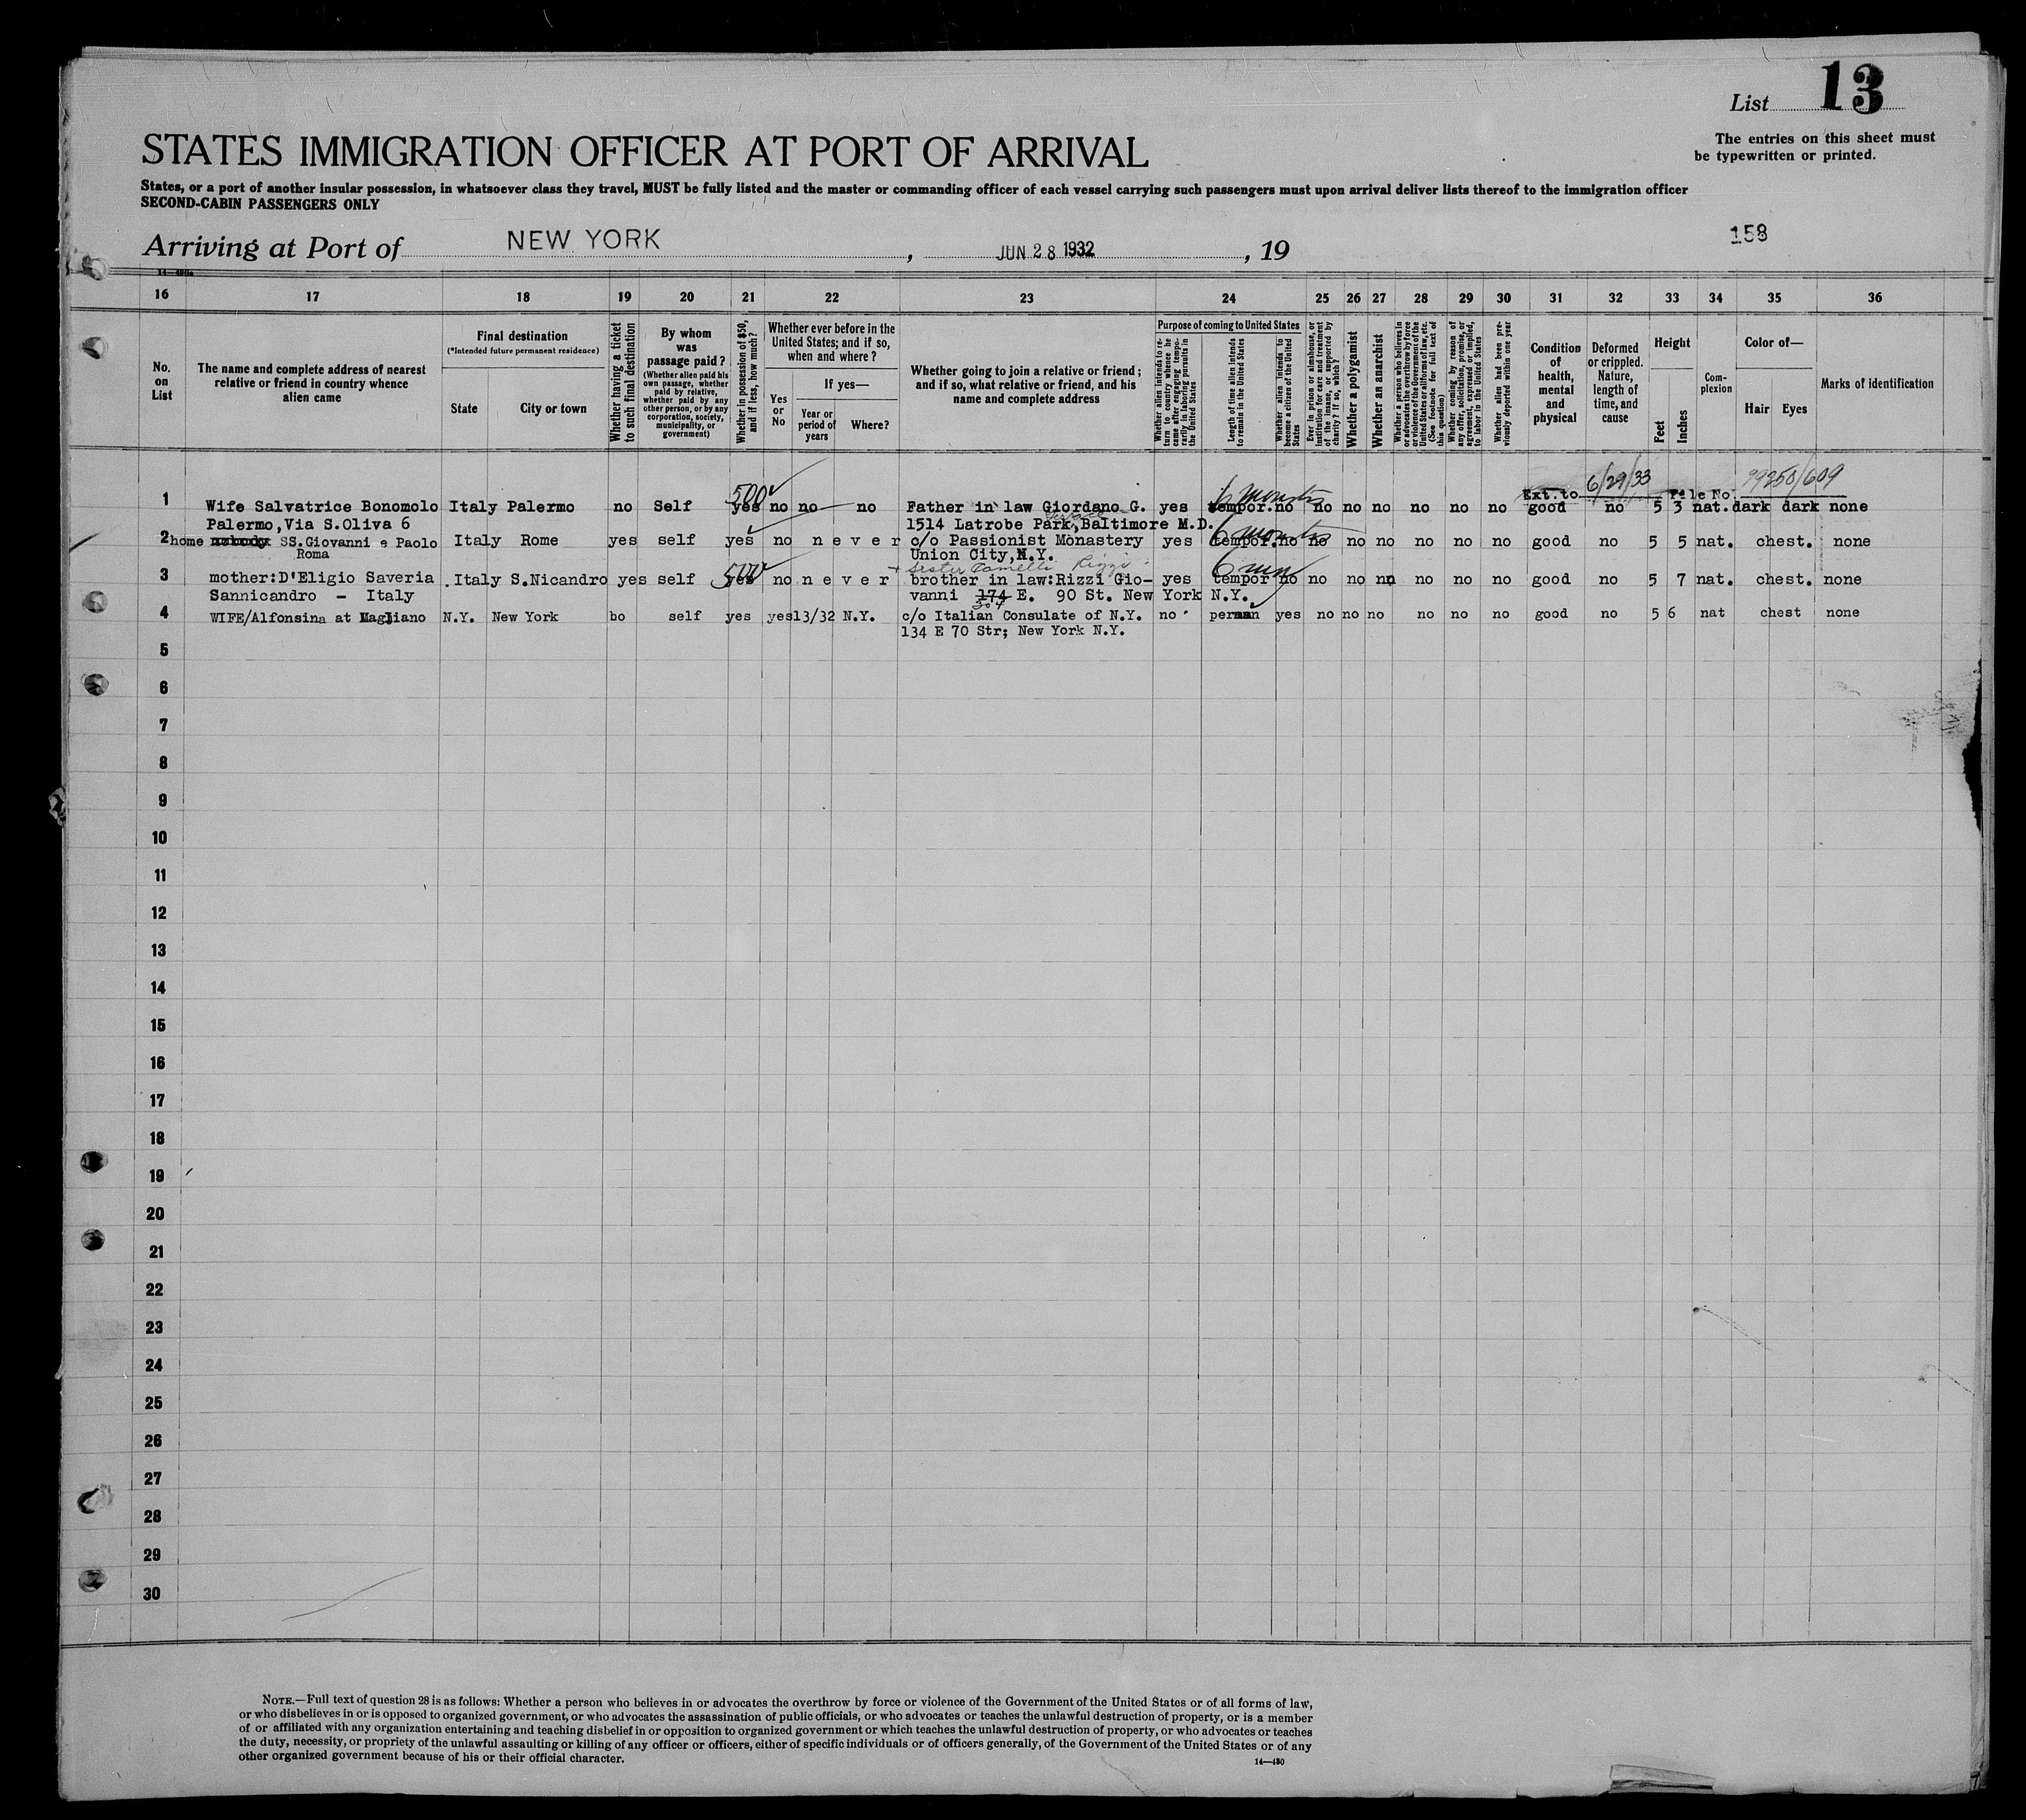 List 13
The entries on this sheet must
be typewritten or printed.
STATES IMMIGRATION OFFICER AT PORT OF ARRIVAL
States, or a port of another insular possession, in whatsoever class they travel, MUST be fully listed and the master or commanding officer of each vessel carrying such passengers must upon arrival deliver lists thereof to the immigration officer
SECOND-CABIN PASSENGERS ONLY
158
Arriving at Port of NEW YORK, JUN 28 1932, 19
16 17 18 19 20 21 22 23 24 25 26 27 28 29 30 31 32 33 34 35 36
No. on List
The name and complete address of nearest relative or friend in country whence alien came
Final destination
(*Intended future permanent residence)
State
City or town
Whether having a ticket to such final destination
By whom was passage paid?
(Whether alien paid his own passage, whether paid by relative, whether paid by any other person, or by any corporation, society, municipality, or government)
Whether in possession of $50, and if less, how much?
Whether ever before in the United States; and if so, when and where?
Yes or No
If yes—
Year or period of years
Where?
Whether going to join a relative or friend; and if so, what relative or friend, and his name and complete address
Purpose of coming to United States
Whether alien intends to return to country whence he came after engaging temporarily in laboring pursuits in the United States
Length of time alien intends to remain in the United States
Whether alien intends to become a citizen of the United States
Ever in prison or almshouse, or institution for care and treatment of the insane, or supported by charity? If so, which?
Whether a polygamist
Whether an anarchist
Whether a person who believes in or advocates the overthrow by force or violence of the Government of the United States or all forms of law, etc. (See footnote for full text of this question)
Whether coming by reason of any offer, solicitation, promise, or agreement, expressed or implied, to labor in the United States
Whether alien had been previously deported within one year
Condition of health, mental and physical
Deformed or crippled. Nature, length of time, and cause
Height
Feet
Inches
Complexion
Color of—
Hair
Eyes
Marks of identification
Ext. to 6/29/33 File No. 99250/609
1 Wife Salvatrice Bonomolo Italy Palermo no Self 500 yes no no no Father in law Giordano G. yes 6 months tempor. no no no no no no no good no 5 3 nat. dark dark none
Palermo,Via S.Oliva 6 1514 Latrobe Park,Baltimore M.D.
2 home nobody SS.Giovanni e Paolo Italy Rome yes self yes no never c/o Passionist Monastery yes 6 months tempor. no no no no no no no good no 5 5 nat. chest. none
Roma Union City,N.Y.
Sister Camelli Rizzi
3 mother:D'Eligio Saveria Italy S.Nicandro yes self 500 yes no never brother in law:Rizzi Gio- yes 6 mon tempor no no no no no no no good no 5 7 nat. chest. none
Sannicandro - Italy vanni 174 E. 90 St. New York N.Y.
304
4 WIFE/Alfonsina at Magliano N.Y. New York bo self yes yes 13/32 N.Y. c/o Italian Consulate of N.Y. no perman yes no no no no no no good no 5 6 nat chest none
134 E 70 Str; New York N.Y.
5
6
7
8
9
10
11
12
13
14
15
16
17
18
19
20
21
22
23
24
25
26
27
28
29
30
NOTE.—Full text of question 28 is as follows: Whether a person who believes in or advocates the overthrow by force or violence of the Government of the United States or of all forms of law,
or who disbelieves in or is opposed to organized government, or who advocates the assassination of public officials, or who advocates or teaches the unlawful destruction of property, or is a member
of or affiliated with any organization entertaining and teaching disbelief in or opposition to organized government or which teaches the unlawful destruction of property, or who advocates or teaches
the duty, necessity, or propriety of the unlawful assaulting or killing of any officer or officers, either of specific individuals or of officers generally, of the Government of the United States or of any
other organized government because of his or their official character.
14—430